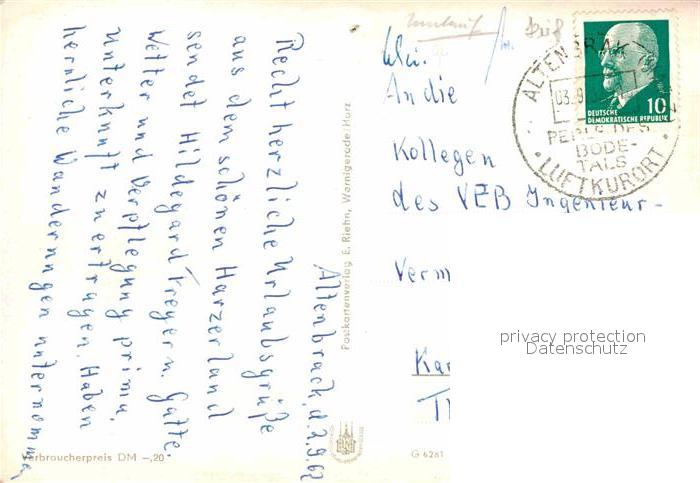 Altenbrack, d. 2.9.62
Recht herzliche Urlaubsgrüße
aus dem schönen Harzerland
sendet Hildegard Freyer u. Gatte.
Wetter und Verpflegung prima,
Unterkunft zu ertragen. Haben
herrliche Wanderungen unternommen
Verbraucherpreis DM -,20
Postkartenverlag E. Riehn, Wernigerode/Harz
G 6281
An die
Kollegen
des VEB Ingenieur-
Verm
Kar
ALTENBRAK
03.9
PERLE DES
BODE-
TALS
LUFTKURORT
10
DEUTSCHE
DEMOKRATISCHE REPUBLIK
privacy protection
Datenschutz